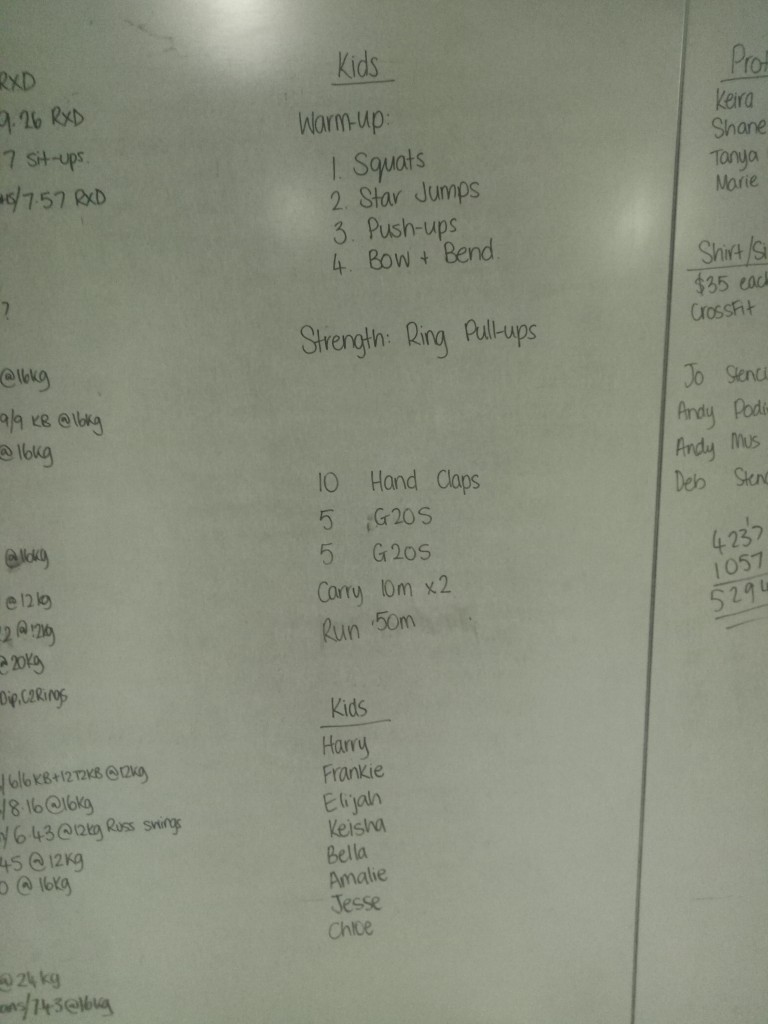 RXD
9.26 RXD
7 Sit-ups.
/7.57 RXD
?
@16kg
9/9 KB @16kg
@16kg
@16kg
@12kg
2 @12kg
@20kg
Dip, C2Rings
/6/6KB+12T2KB@12kg
/8.16@16kg
/6.43@12kg Russ swings
45 @12kg
0 @16kg
@24kg
/7.43@16kg
Kids
Warm-up:
1. Squats
2. Star Jumps
3. Push-ups
4. Bow + Bend.
Strength: Ring Pull-ups
10 Hand Claps
5 G2OS
5 G2OS
Carry 10m x2
Run 50m
Kids
Harry
Frankie
Elijah
Keisha
Bella
Amalie
Jesse
Chloe
Prot
Keira
Shane
Tanya
Marie
Shirt/Si
$35 eac
CrossFit
Jo Stenci
Andy Podi
Andy Mus
Deb Sten
4237
1057
5294